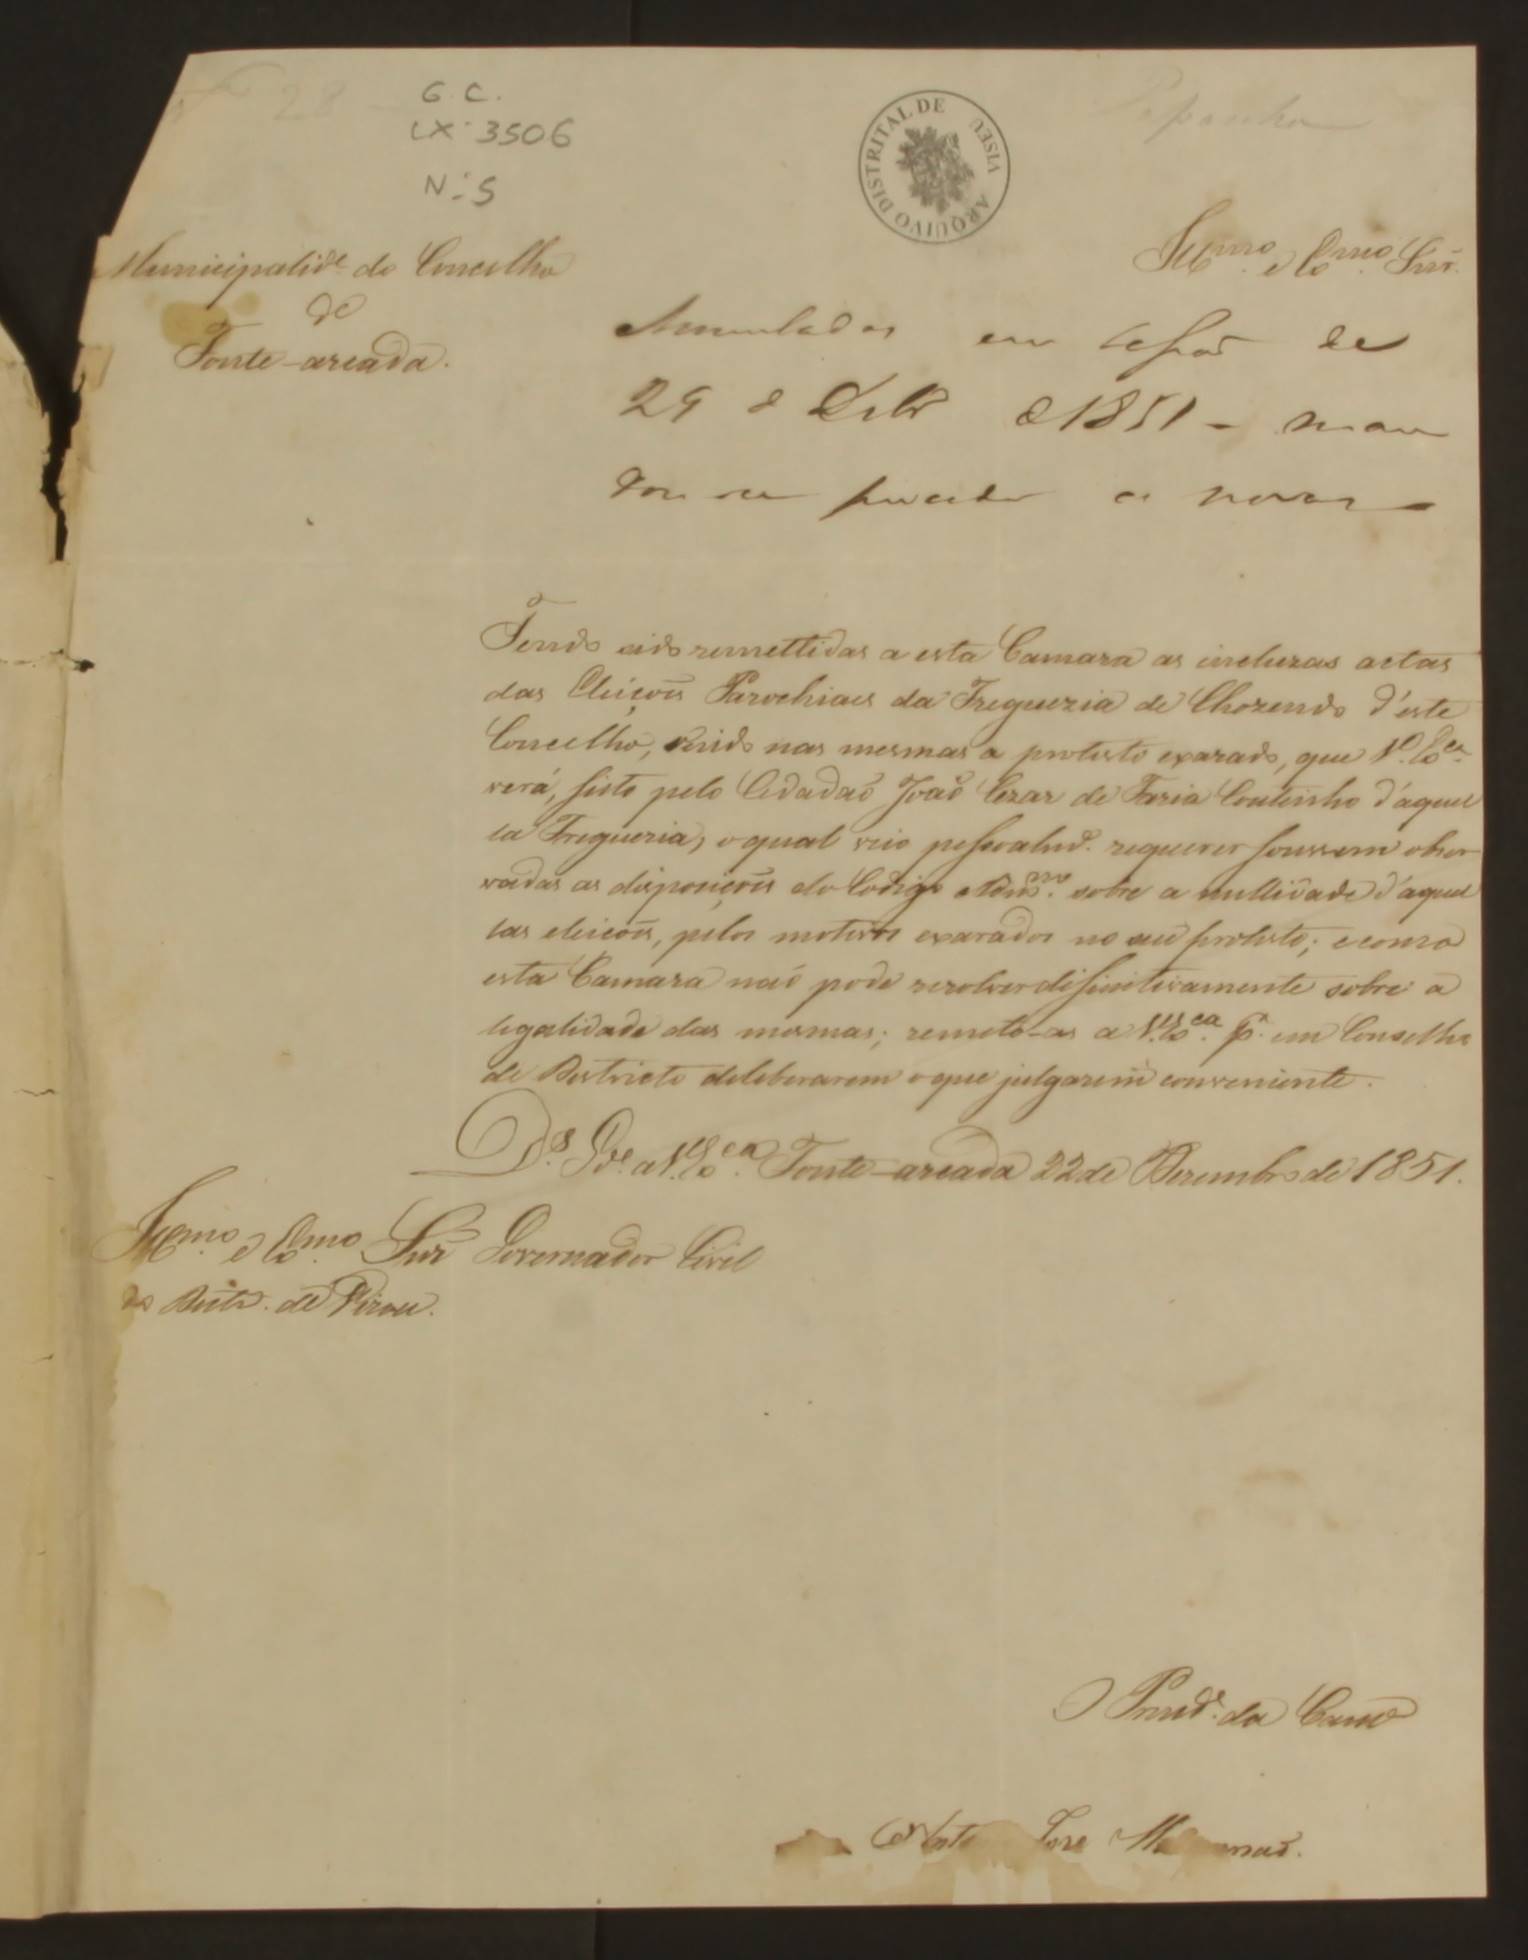 G. C.
CX. 3506
N.: 5
ARQUIVO DISTRITAL DE VISEU
Municipalid.e do Concelho
de
Fonte-arcada.
Illmo. e Exmo. Snr.
Annuladas em sessão de
29 de Dezbro de 1851 - man
dou se proceder a novas
Tendo sido remettidas a esta Camara as incluzas actas
das Eleiçoẽs Parochiaes da Freguezia de Chozendo d'este
Concelho, vindo nas mesmas o protesto exarado, que V. Exca.
verá, feito pelo Cidadaõ Joaõ Cezar de Faria Coutinho d'aquel
la Freguezia, o qual veio pessoalmte. requerer fossem obser
vadas as disposiçoẽs do Codigo Admo. sobre a nullidade d'aquel
las eleiçoẽs, pelos motivos exarados no seu protesto; e como
esta Camara naõ pode rezolver difinitivamente sobre a
legalidade das mesmas; remeto-as a V. Exca. pa. em Conselho
de Districto deliberarem o que julgarem conveniente.
Ds. Gde. a V. Exca. Fonte-arcada 22 de Dezembro de 1851.
Illmo. e Exmo. Snr Governador Civil
do Distr. de Vizeu.
O Presid.e da Camra
José